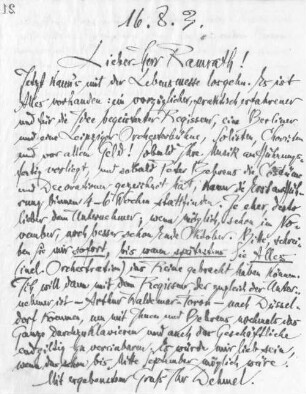 16. 8. 3.
Lieber Herr Kamrath!
Jetzt kann's mit der Lebensmesse losgehn. Es ist
Alles vorhanden: ein vorzüglicher, praktisch erfahrener
und für die Idee begeisterter Regisseur, eine Berliner
und eine Leipziger Orchesterbühne, Solisten, Choristen
und vor allem Geld! Sobald Ihre Musik aufführungs-
fertig vorliegt, und sobald Peter Behrens die Costüme
und Decorationen gezeichnet hat, kann die Erstauffüh-
rung binnen 4-6 Wochen stattfinden. Je eher, desto
lieber dem Unternehmer; wenn möglich, schon im No-
vember, noch besser schon Ende Oktober. Bitte, schrei-
ben Sie mir sofort, bis wann spätestens Sie Alles
(incl. Orchestration) ins Reine gebracht haben können.
Ich will dann mit dem Regisseur, der zugleich der Unter-
nehmer ist — Arthur — nach Düssel-
dorf kommen, um mit Ihnen und Behrens nochmals das
Ganze durchzuklavieren und auch das Geschäftliche
endgiltig zu vereinbaren. Es würde mir lieb sein,
wenn das schon bis Mitte September möglich wäre.
Mit ergebenstem Gruß Ihr Dehmel.